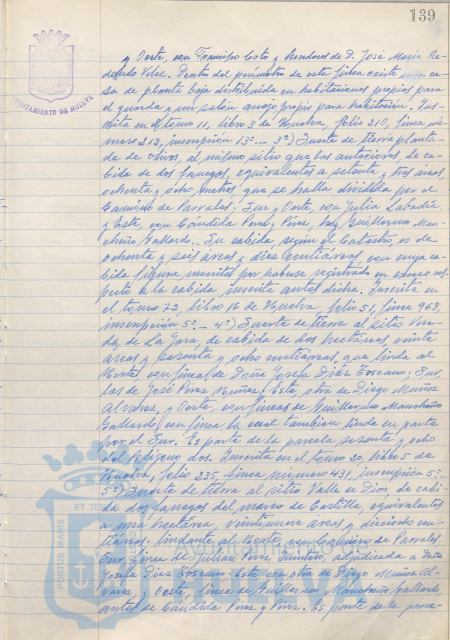 139
AYUNTAMIENTO DE HUELVA
y Oeste, con Francisco Coto y herederos de D. José María Re-
dondo Vélez. Dentro del perímetro de esta finca existe una ca-
sa de planta baja distribuida en habitaciones propias para
el guarda y un salón anejo propio para habitación. Ins-
crita en el tomo 11, libro 3 de Huelva, folio 210, finca nú-
mero 213, inscripción 13ª.- 3ª) Suerte de tierra planta-
da de olivos, al mismo sitio que las anteriores, de ca-
bida de dos fanegas, equivalentes a setenta y tres áreas
ochenta y ocho, que se halla dividida por el
Camino de Parrales. Sur y Oeste, con Julia Labadía
y Este, con Cándida Pérez y Pérez, hoy Guillermo Man-
cheño Gallardo. Su cabida, según el Catastro, es de
ochenta y seis áreas y diez centiáreas, con cuya ca-
bida figura inscrita por haberse registrado en exceso res-
pecto a la cabida inscrita antes dicha. Inscrita en
el tomo 72, libro 16 de Huelva folio 51, finca 968,
inscripción 5ª.- 4ª) Suerte de tierra al sitio Vere-
da de La Jara, de cabida de dos hectáreas, veinte
áreas y sesenta y ocho centiáreas, que linda al
Norte con fincas de Doña Josefa Díaz Toscano; Sur,
las de José Pérez; Este, otra de Diego Muñoz
Alvarez, y Oeste, con fincas de Guillermo Mancheño
Gallardo, con finca la cual también linda en parte
por el Sur. Es parte de la parcela sesenta y ocho
del Polígono dos. Inscrita en el tomo 20, libro 5 de
Huelva, folio 235, finca número 431, inscripción 5ª.-
5ª) Suerte de tierra al sitio Valle de Dios, de cabi-
da dos fanegas del marco de Castilla, equivalentes
a una hectárea, veintinueve áreas y dieciocho cen-
tiáreas. Lindante al Norte, con Camino de Parrales,
Sur, finca de Julián Pérez, adjudicada a Doña
Josefa Díaz Toscano; Este, con otra de Diego Muñoz Al-
varez, y Oeste, finca de Guillermo Mancheño Gallardo,
antes de Cándida Pérez y Pérez. Es parte de la parce-
PORTUS MARIS
ET TERRAE
Ayuntamiento
HUELVA